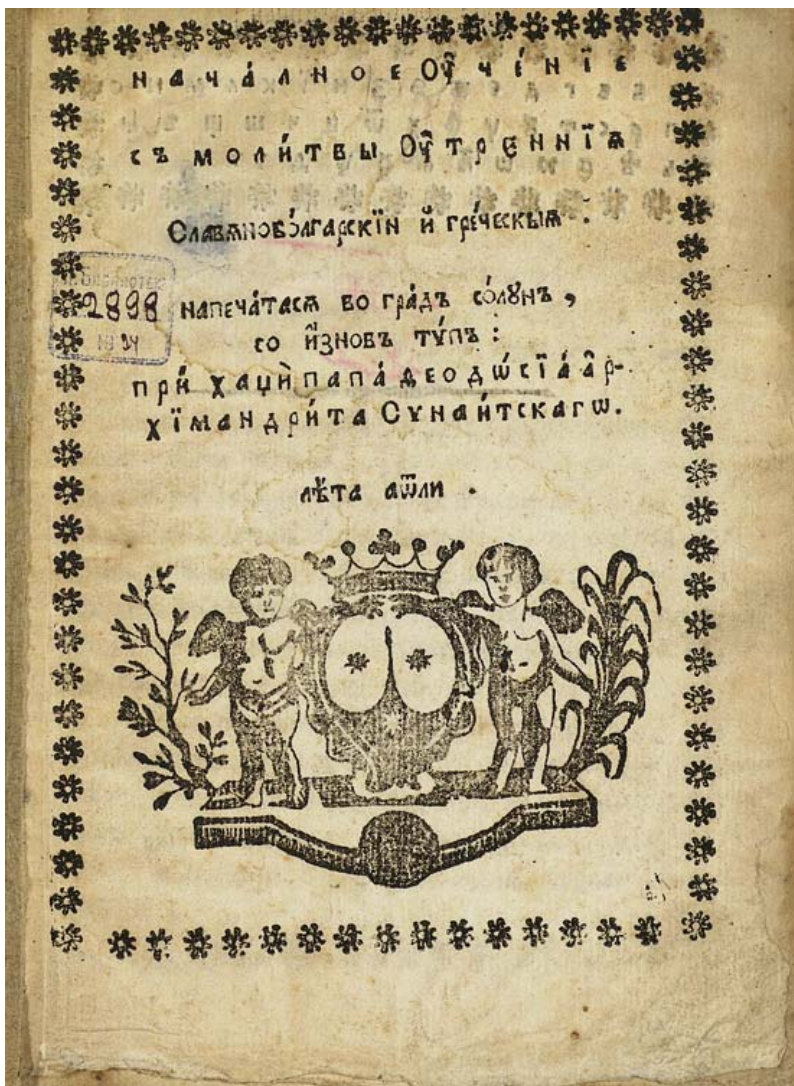 НАЧА́ЛНОЕ ОУ҆ЧЕ́НЇЕ
СЪ МОЛИ́ТВЫ ОУ҆́ТРЕННЇѦ
Славѧнобо́лгарскїи и҆ гре́ческыѧ :
2898 НАПЕЧА́ТАСѦ ВО ГРА́ДѢ СО́ЛꙊНѢ ,
СО И҆ЗНОВЪ ТѴ́ПЪ :
ПРИ́ ХАЏИ̏ ПАПА̀ ѲЕОДѠ́СЇА А҆Р-
ХЇМАНДРИ́ТА СѴНАИ́ТСКАГѠ.
лѣ́та аѿли .